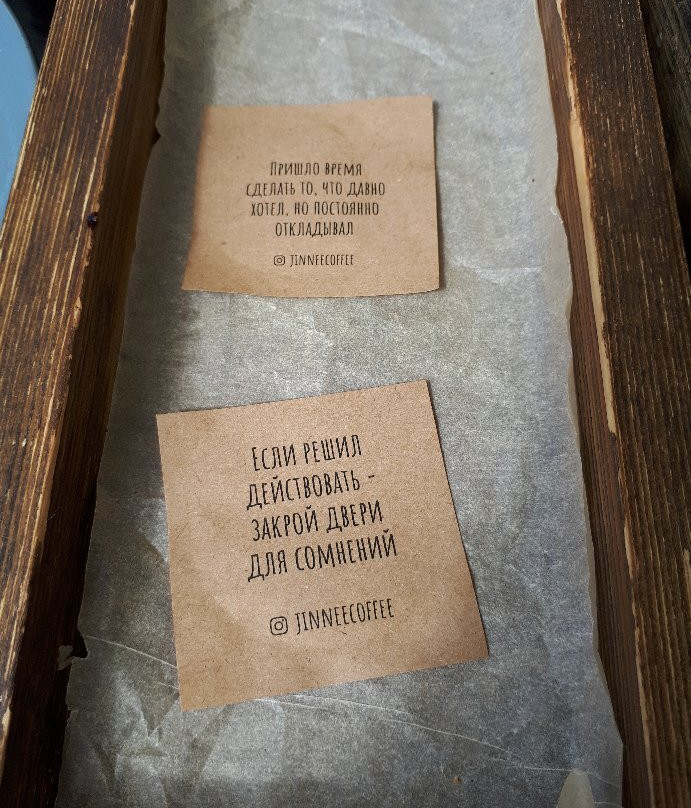 Пришло время
сделать то, что давно
хотел, но постоянно
откладывал
jinneecoffee
Если решил
действовать -
закрой двери
для сомнений
jinneecoffee